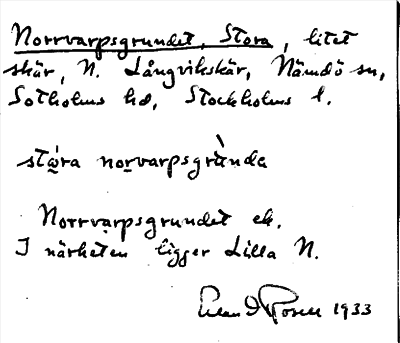 Norrvarpsgrundet, Stora, litet
skär, N. Långvikskär, Nämdö sn,
Sotholms hd, Stockholms l.
stωra norvarpsgrùnda
Norrvarpsgrundet ek.
I närheten ligger Lilla N.
1933